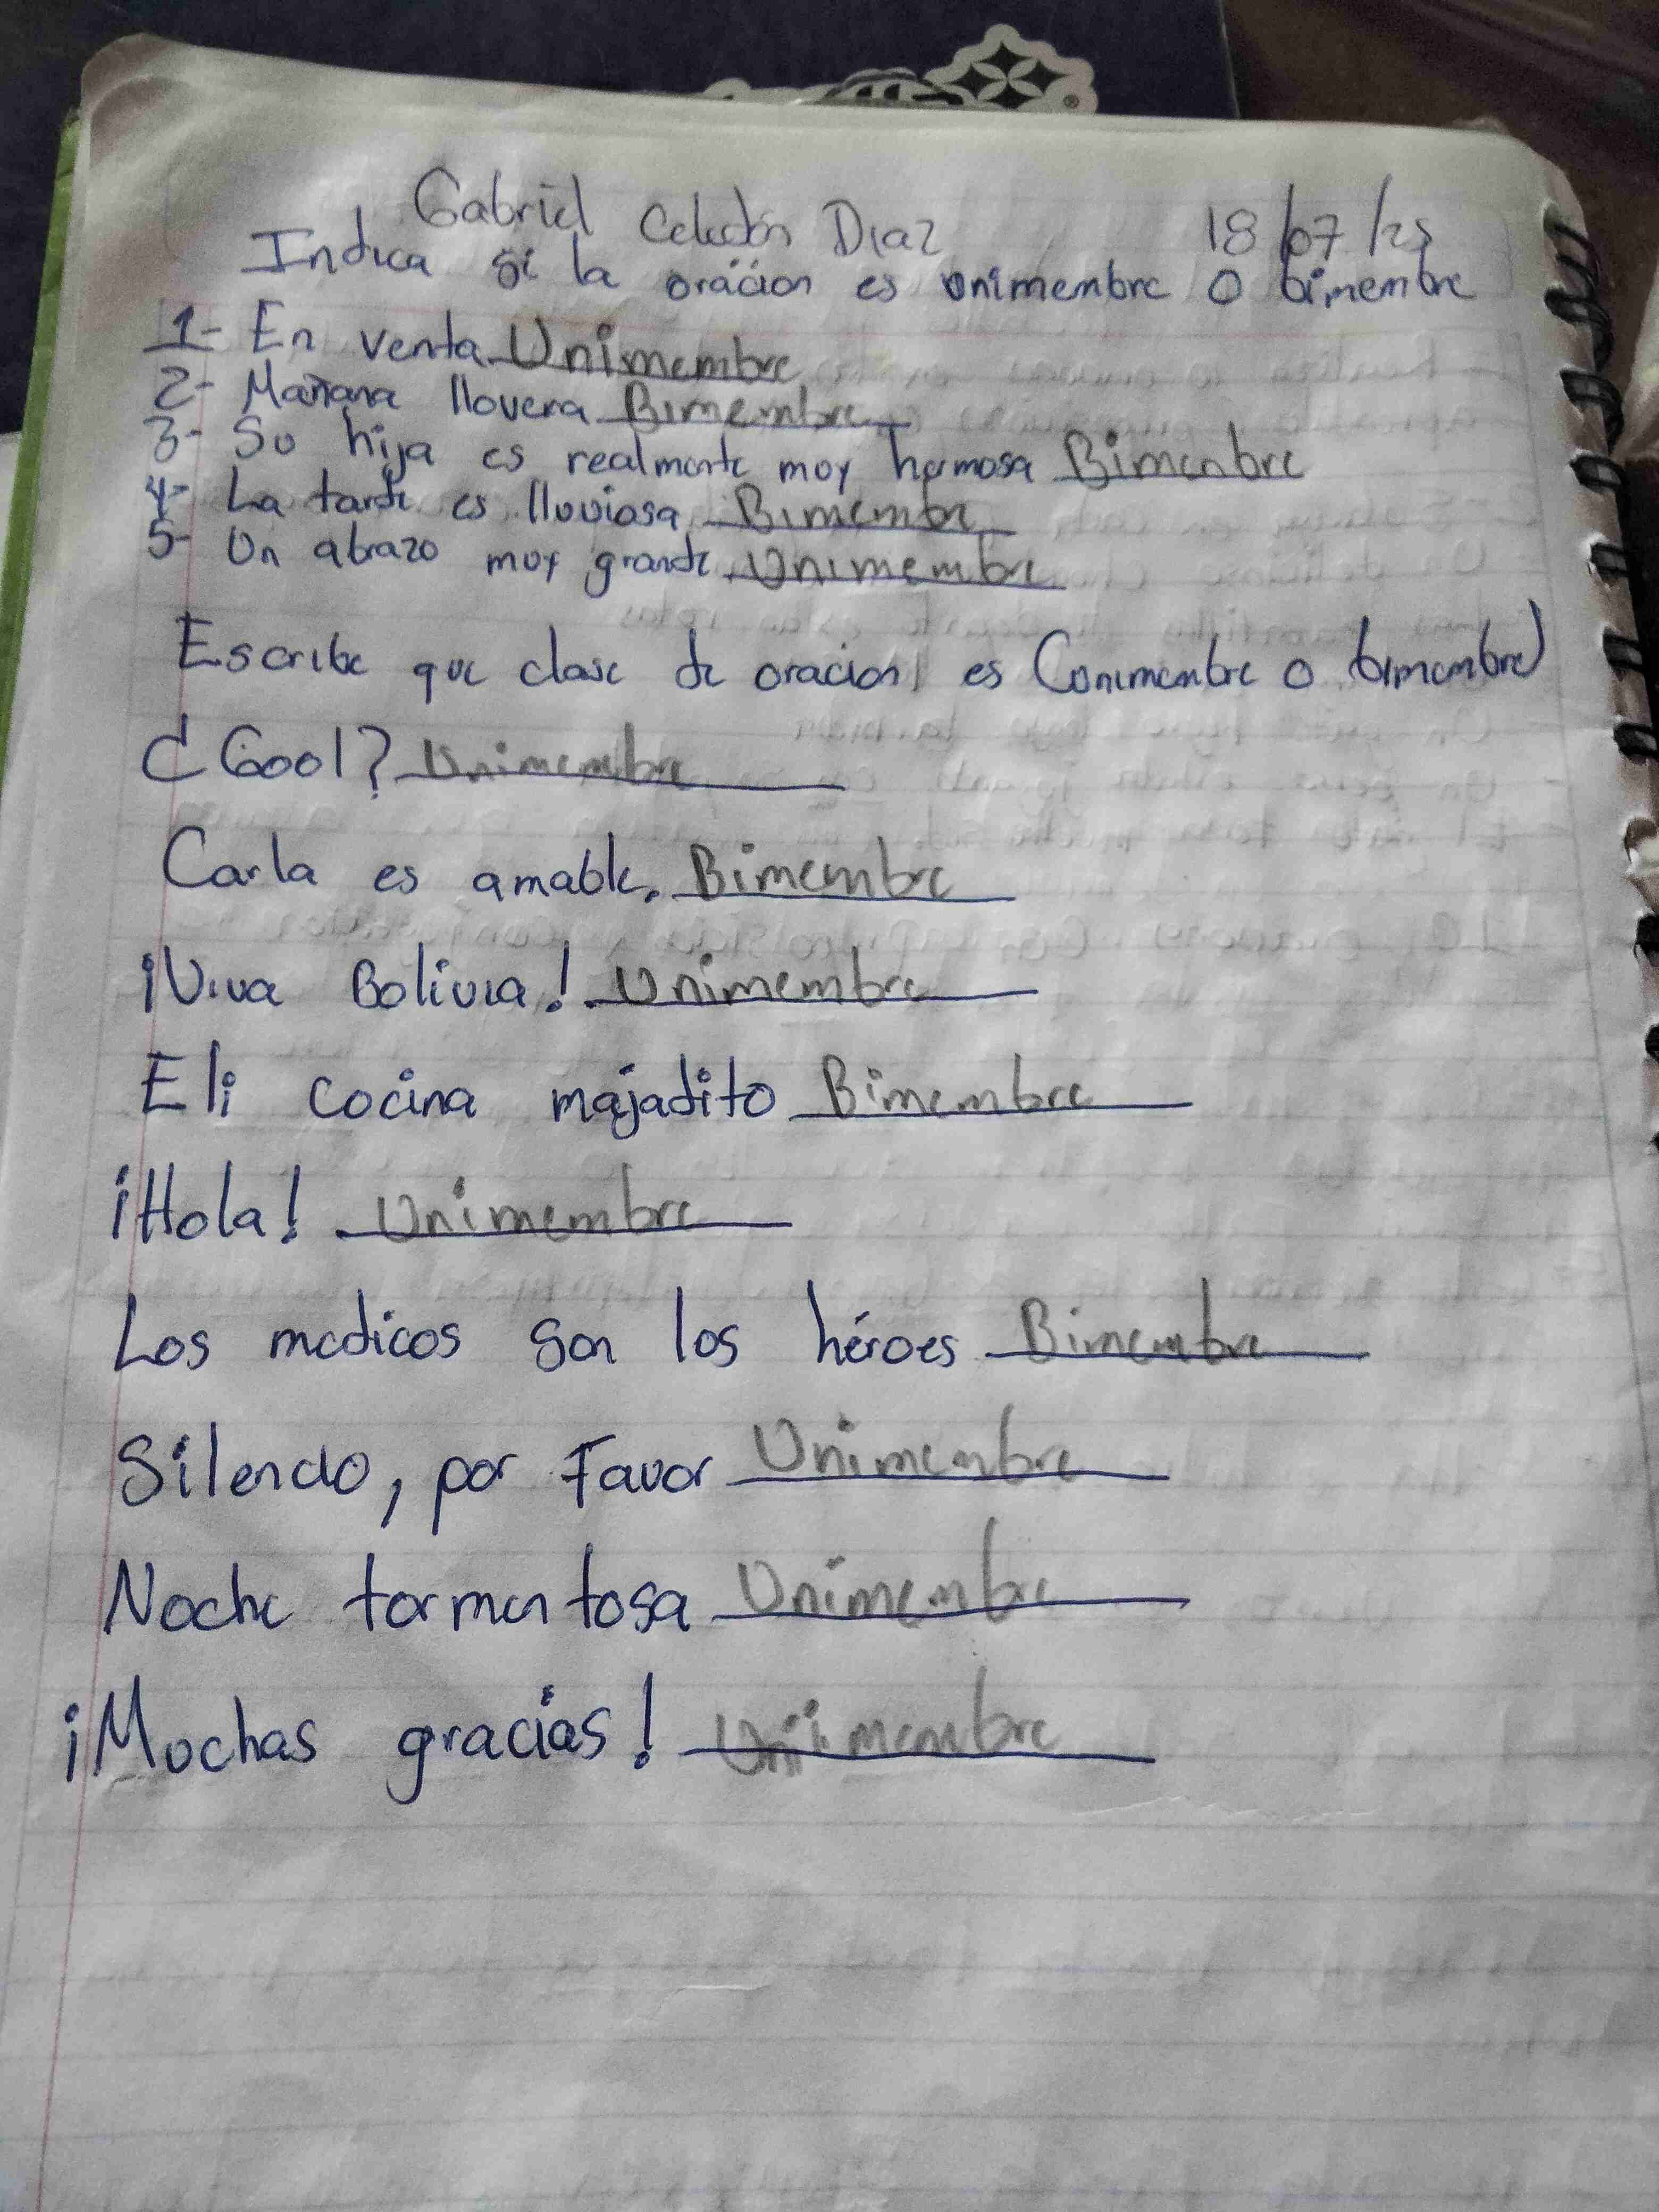 Gabriel Celedón Diaz 18/07/25
Indica si la oración es unimembre o bimembre
1- En venta Unimembre
2- Mañana llovera Bimembre
3- Su hija es realmente muy hermosa Bimembre
4- La tarde es lluviosa Bimembre
5- Un abrazo muy grande Unimembre
Escribe que clase de oracion es (unimembre o bimembre)
¿Gool? Unimembre
Carla es amable. Bimembre
¡Viva Bolivia! Unimembre
Eli cocina majadito Bimembre
¡Hola! Unimembre
Los medicos son los héroes Bimembre
Silencio, por Favor Unimembre
Noche tormentosa Unimembre
¡Muchas gracias! Unimembre